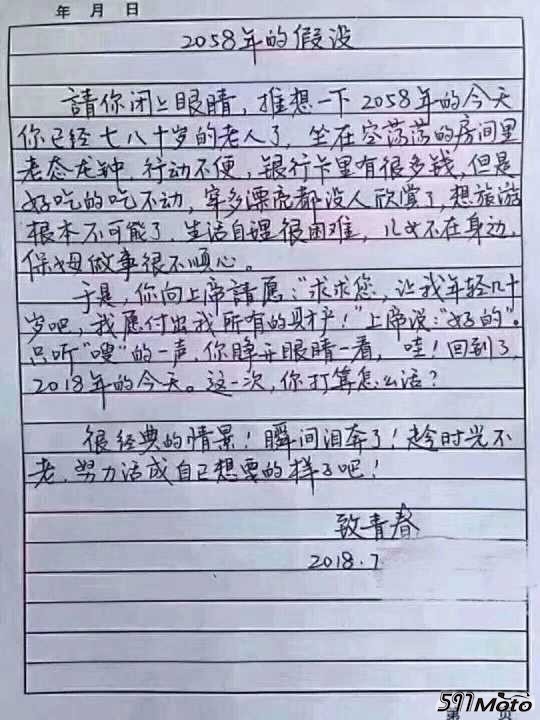 年 月 日
2058年的假设
請你闭上眼睛，推想一下2058年的今天
你已经七八十岁的老人了，坐在空荡荡的房间里
老态龙钟，行动不便，银行卡里有很多钱，但是
好吃的吃不动，穿多漂亮都没人欣赏了，想旅游
根本不可能了，生活自理很困难，儿女不在身边，
保姆做事很不顺心。
于是，你向上帝請愿：“求求您，让我年轻几十
岁吧，我愿付出我所有的财产！”上帝说：“好的”。
只听“嗖”的一声，你睁开眼睛一看，哇！回到了
2018年的今天。这一次，你打算怎么活？
很经典的情景！瞬间泪奔了！趁时光不
老，努力活成自已想要的样子吧！
致青春
2018.7
591Moto
第 页